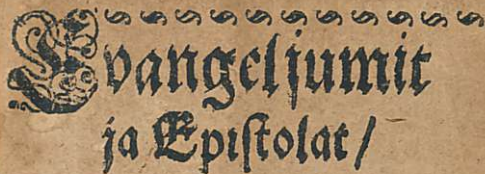 Evangeljumit
ja Epistolat/